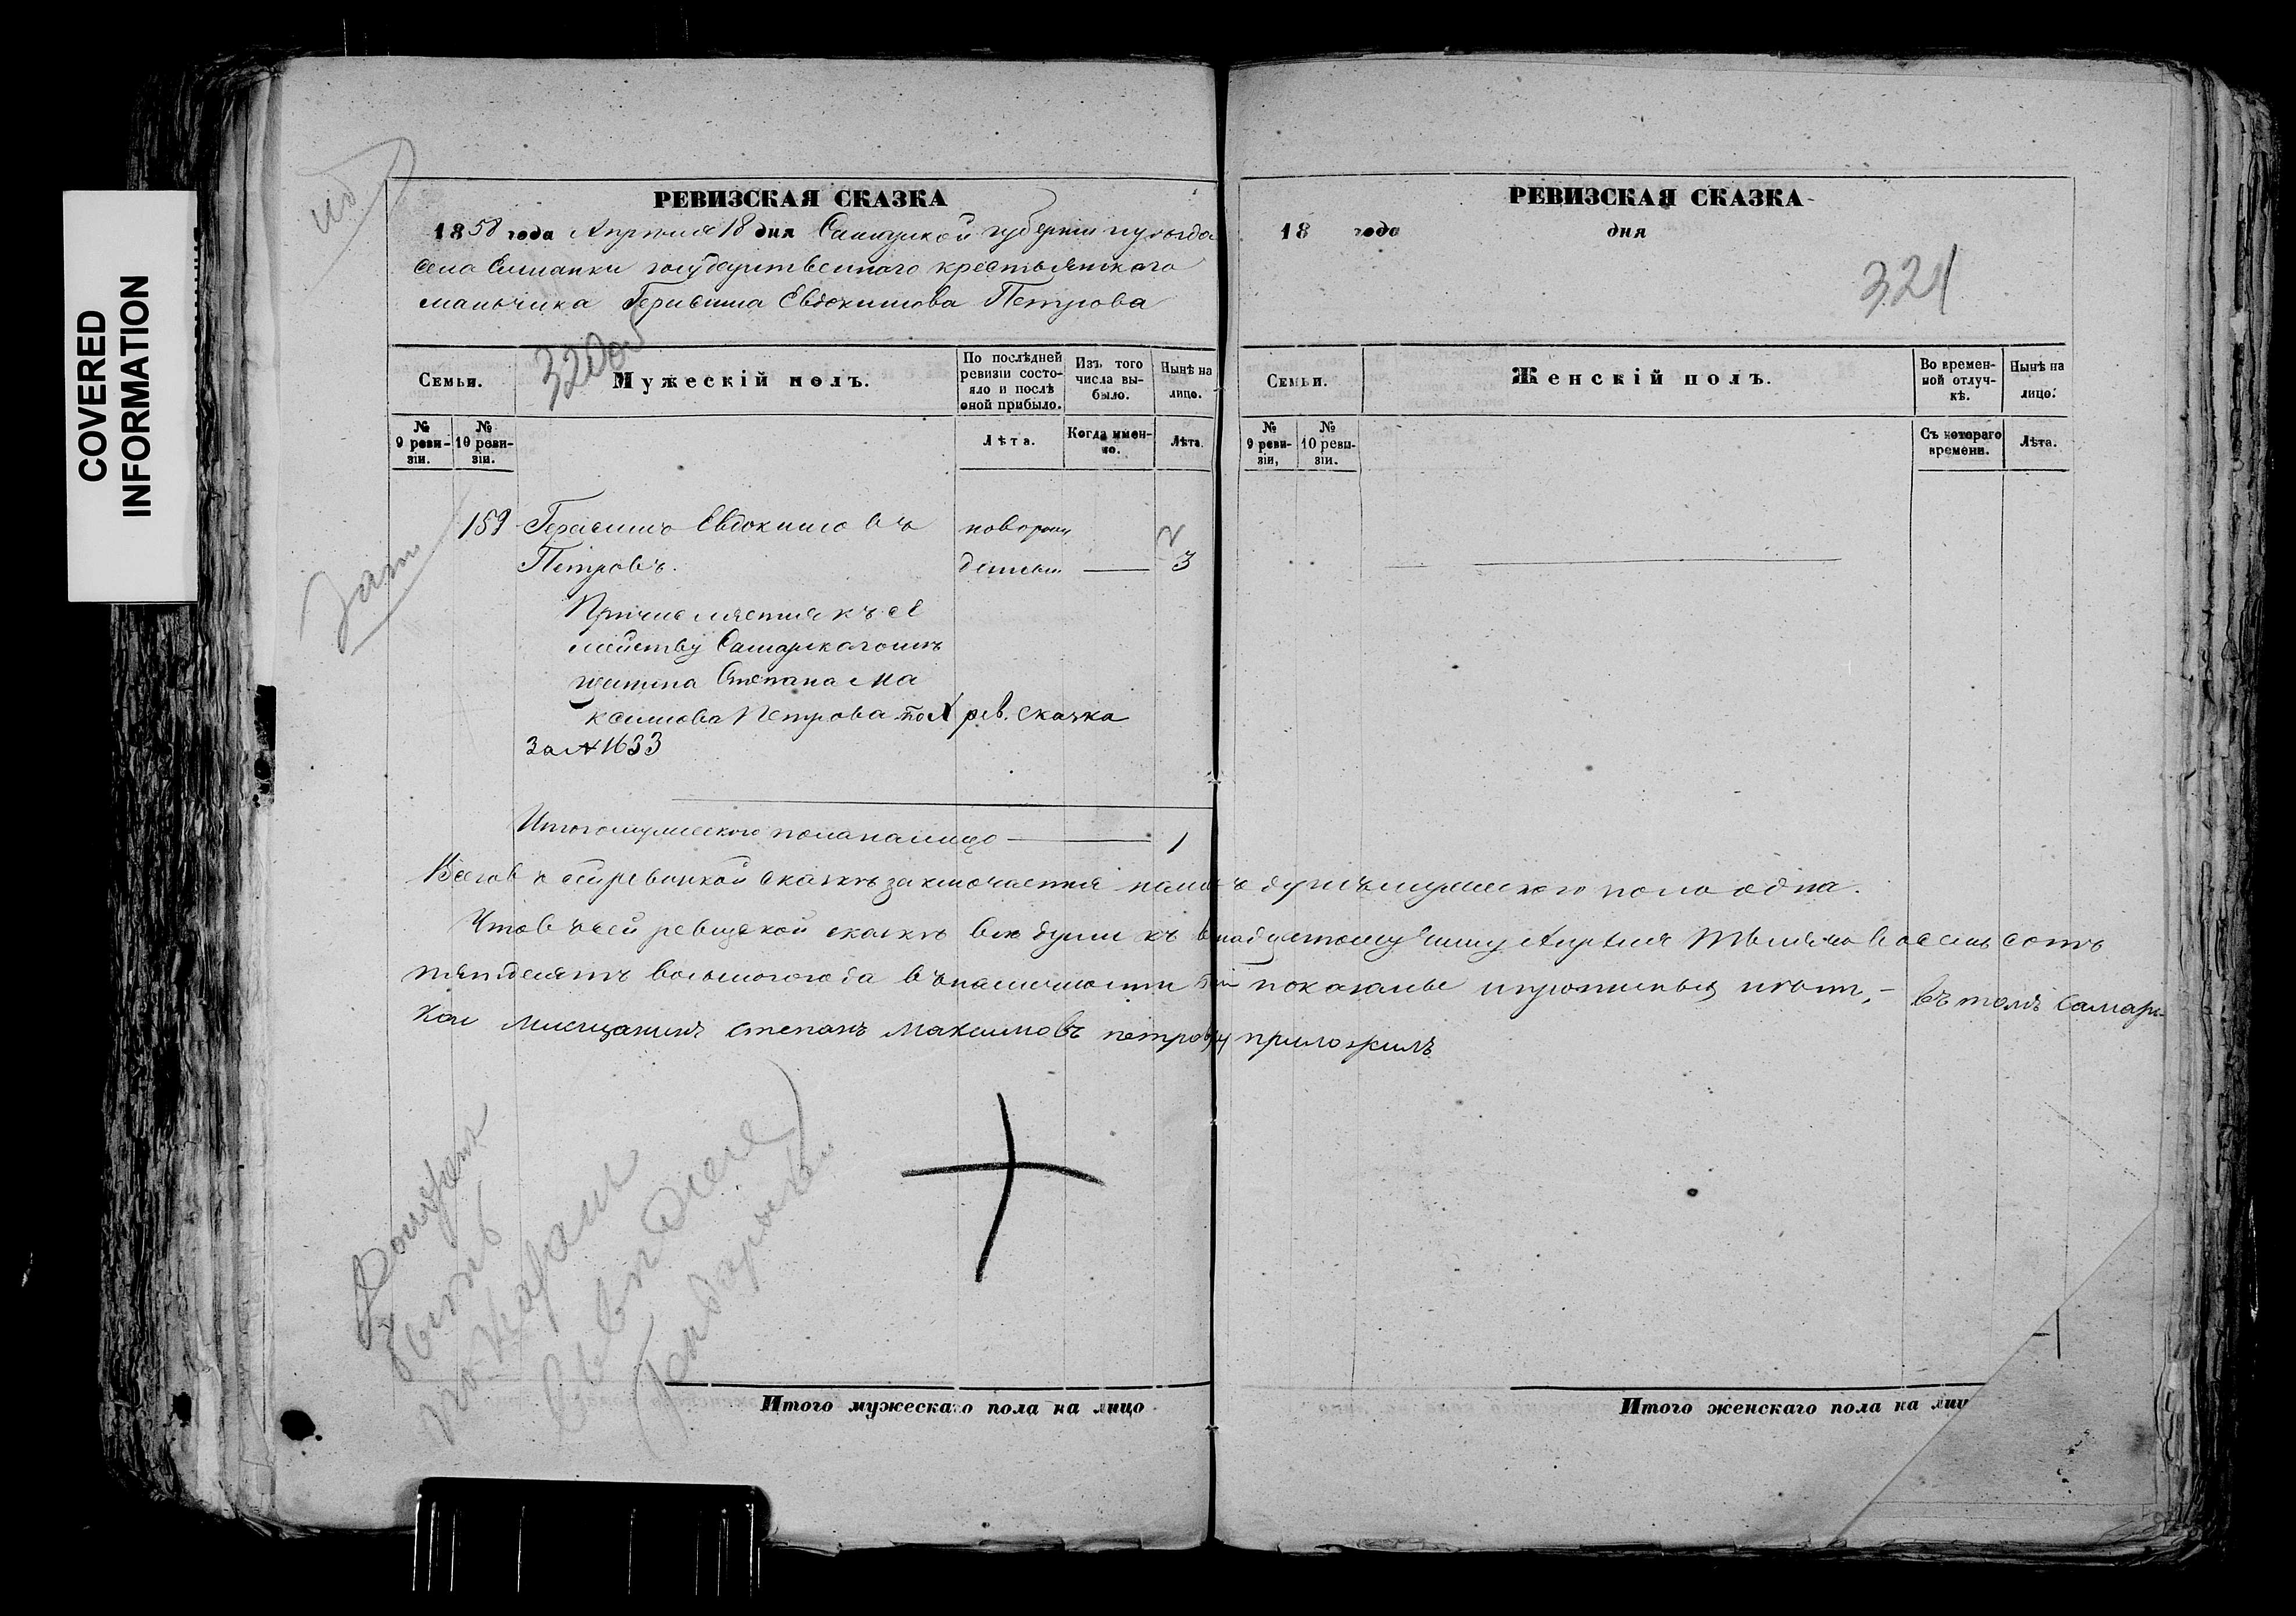 COVERED
INFORMATION
РЕВИЗСКАЯ СКАЗКА
1858 года Апреля 18 дня Самарской губерніи и уезда
села государственного крестьянского
мальчика Герасима Евдокимова Петрова
320об
Семьи.
Мужескій полъ.
По послѣдней ревизіи состояло и послѣ оной прибыло.
Изъ того числа выбыло.
Нынѣ на лицо.
№ 9 ревизіи.
№ 10 ревизіи.
Лѣта.
Когда именно.
Лѣта.
159 Герасимъ Евдокимовъ новорож
Петровъ. денный 3
Зат
Причисляется къ се
мейству Самарского мѣ
щанина Степана Ма
ксимова Петрова по X рев. сказка
За № 1633
Итого мужеского пола налицо 1
Всего въ сей ревизской сказкѣ заключается налицо душъ мужеского пола одна.
Что въ сей ревизской сказкѣ все души къ Апреля Тысяча восемь сотъ
пятьдесятъ восьмого года въ наличности показаны и нетъ, - въ томъ Самарс
кои мисщанинъ степанъ максимовъ петровъ приложилъ
Итого мужескаго пола на лицо
РЕВИЗСКАЯ СКАЗКА
18 года дня
321
Семьи.
Женскій полъ.
Во временной отлучкѣ.
Нынѣ на лицо.
№ 9 ревизіи,
№ 10 ревизіи.
Съ котораго времени.
Лѣта.
Итого женскаго пола на лиц